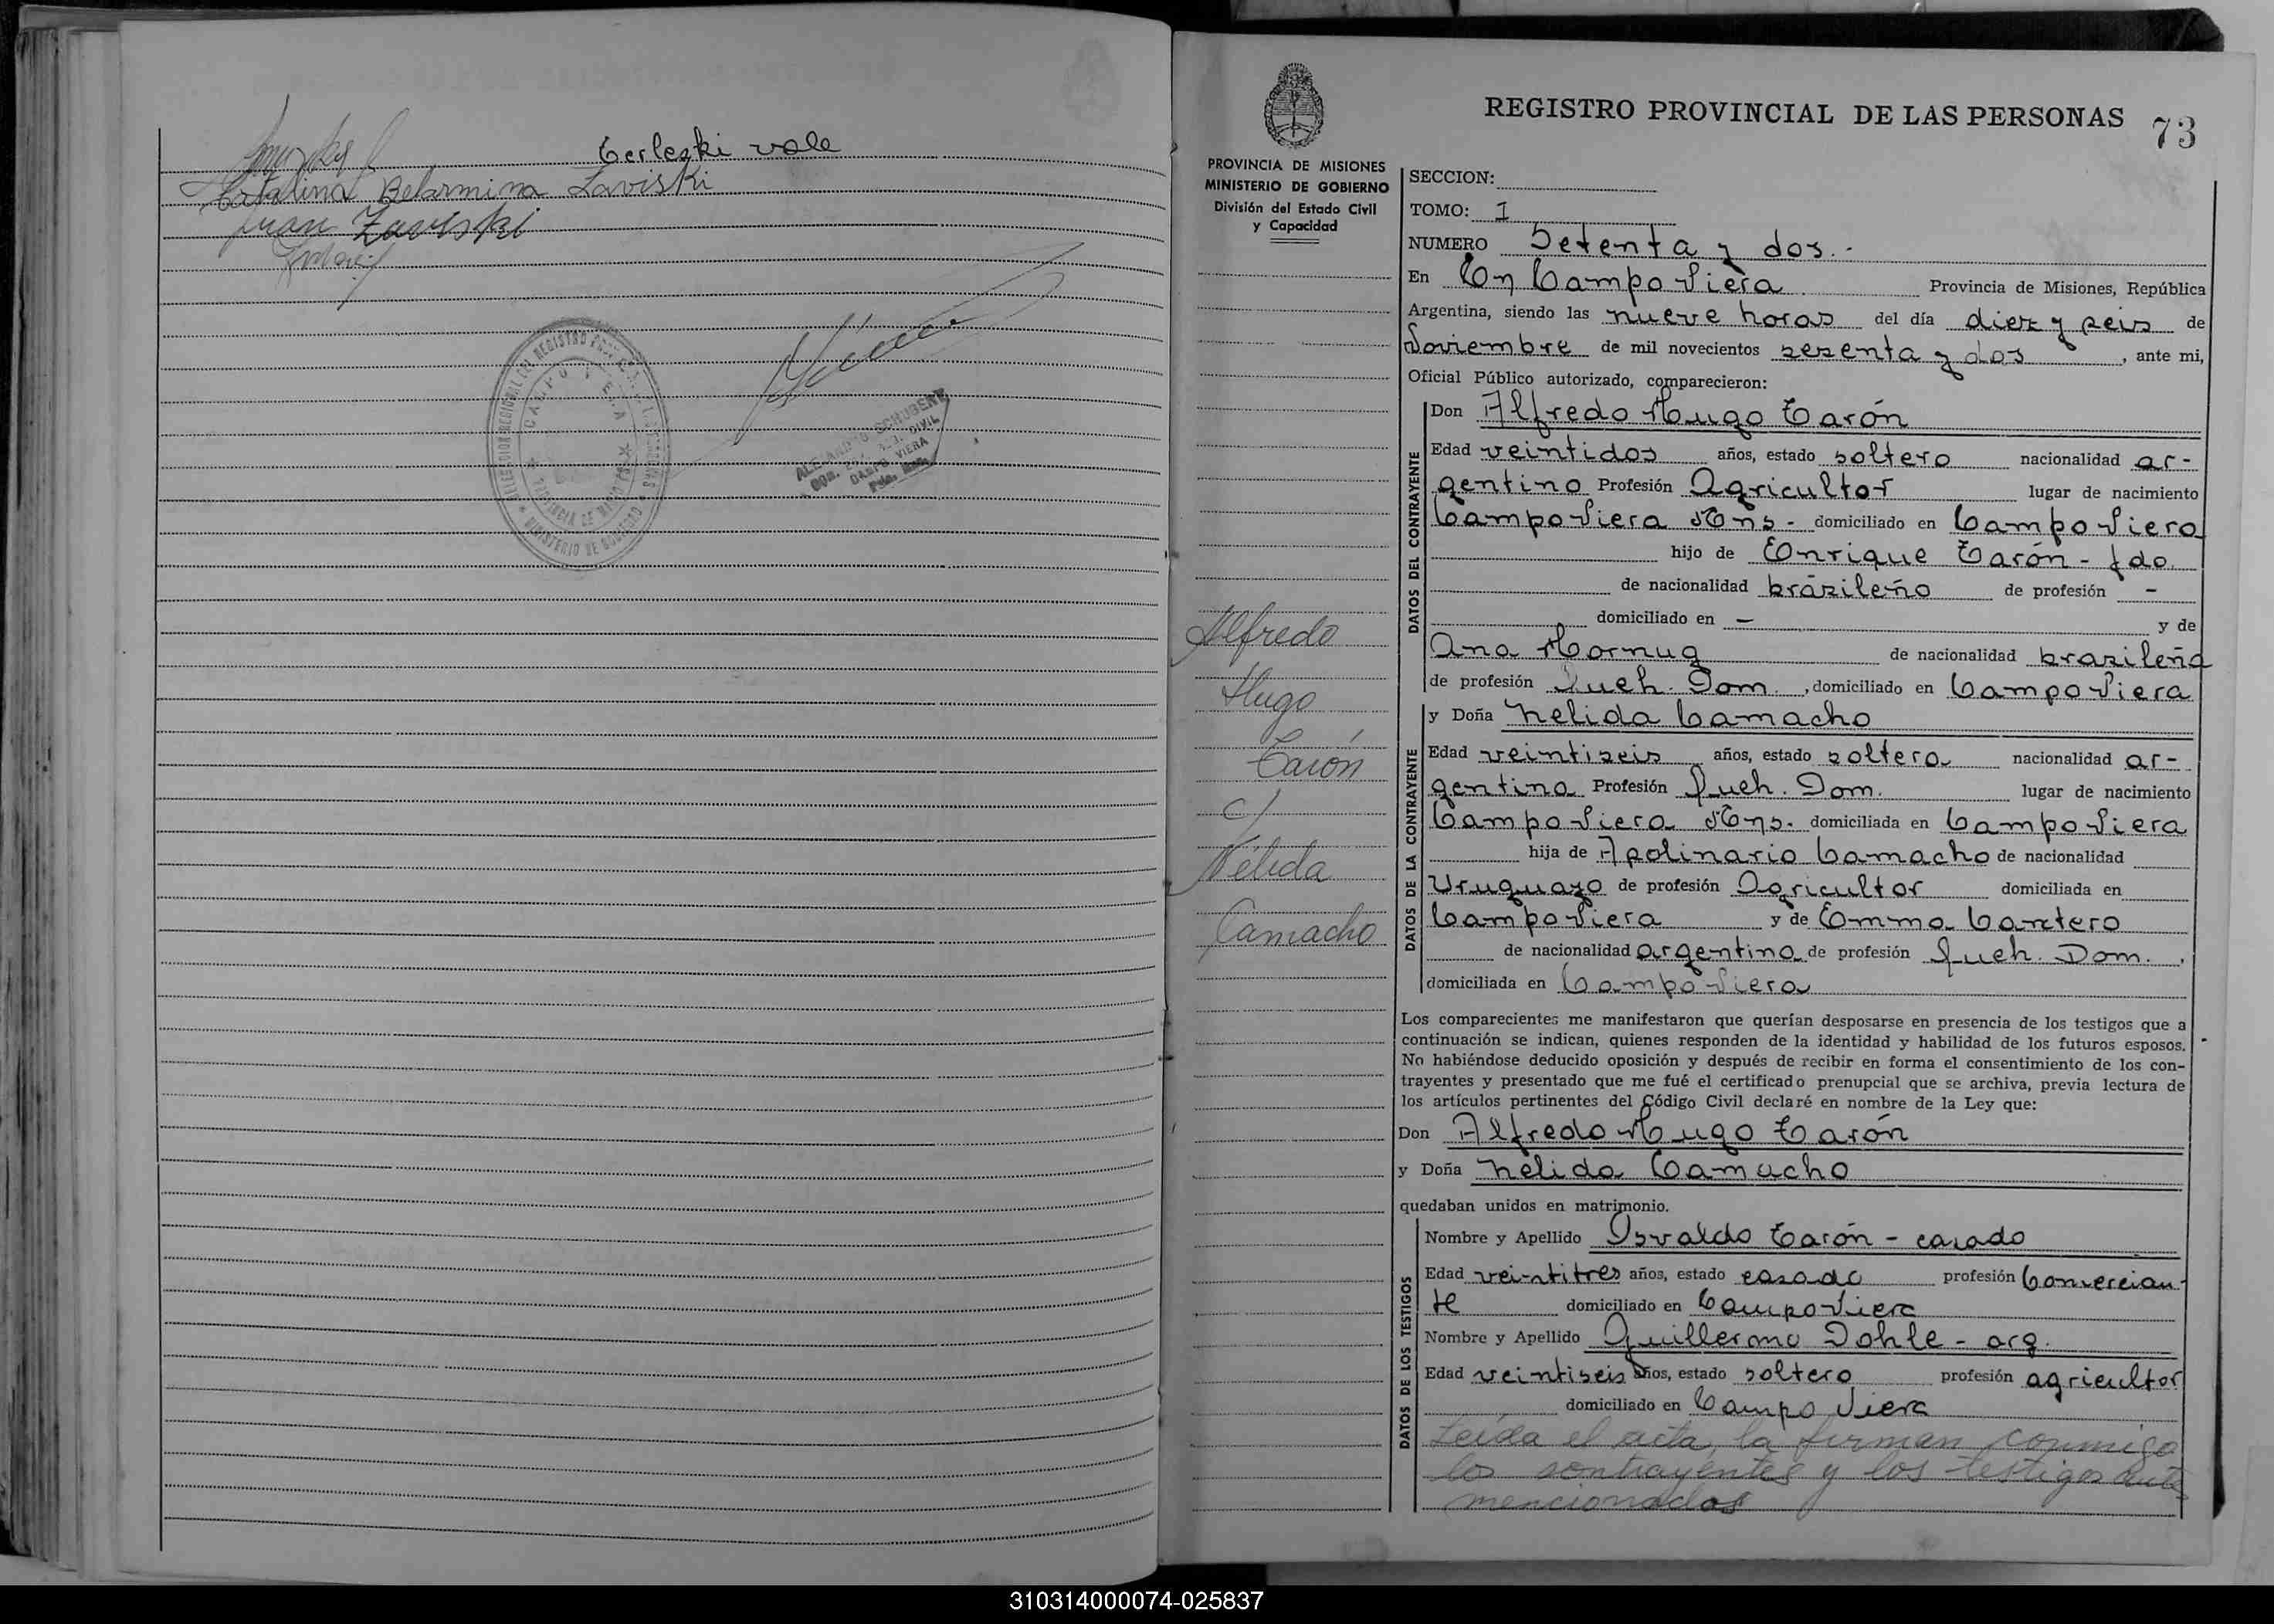 Terleski vale
Catalina Belarmina Zaviski
Juan Zaviski
CAMPO VIERA
ALEJANDRO SCHUBERT
CAMPO VIERA
REGISTRO PROVINCIAL DE LAS PERSONAS 73
PROVINCIA DE MISIONES
MINISTERIO DE GOBIERNO
División del Estado Civil
y Capacidad
Alfredo
Hugo
Tarón
c/
Nélida
Camacho
SECCION:
TOMO: I
NUMERO Setenta y dos.-
En En Campo Viera Provincia de Misiones, República
Argentina, siendo las nueve horas del día diez y seis de
Noviembre de mil novecientos sesenta y dos, ante mi,
Oficial Público autorizado, comparecieron:
DATOS DEL CONTRAYENTE
Don Alfredo Hugo Tarón
Edad veintidos años, estado soltero nacionalidad ar-
gentino Profesión Agricultor lugar de nacimiento
Campo Viera Mns- domiciliado en Campo Viera
hijo de Enrique Tarón - fdo.
de nacionalidad brasileño de profesión -
domiciliado en - y de
Ana Hornug de nacionalidad brasileña
de profesión Queh. Dom., domiciliado en Campo Viera
DATOS DE LA CONTRAYENTE
y Doña Nelida Camacho
Edad veintiseis años, estado soltera nacionalidad ar-
gentina Profesión Queh. Dom. lugar de nacimiento
Campo Viera Mns. domiciliada en Campo Viera
hija de Apolinario Camacho de nacionalidad
Uruguayo de profesión Agricultor domiciliada en
Campo Viera y de Emma
de nacionalidad argentina de profesión Queh. Dom.,
domiciliada en Campo Viera
Los comparecientes me manifestaron que querían desposarse en presencia de los testigos que a
continuación se indican, quienes responden de la identidad y habilidad de los futuros esposos.
No habiéndose deducido oposición y después de recibir en forma el consentimiento de los con-
trayentes y presentado que me fué el certificado prenupcial que se archiva, previa lectura de
los artículos pertinentes del Código Civil declaré en nombre de la Ley que:
Don Alfredo Hugo Tarón
y Doña Nelida Camacho
quedaban unidos en matrimonio.
DATOS DE LOS TESTIGOS
Nombre y Apellido Osvaldo Tarón - casado
Edad veintitres años, estado casado profesión Comercian-
te domiciliado en Campo Viera
Nombre y Apellido Guillermo Dohle - arg.
Edad veintiseis años, estado soltero profesión agricultor
domiciliado en Campo Viera
Leída el acta, la firman conmigo
los contrayentes y los testigos ante
mencionados
310314000074-025837